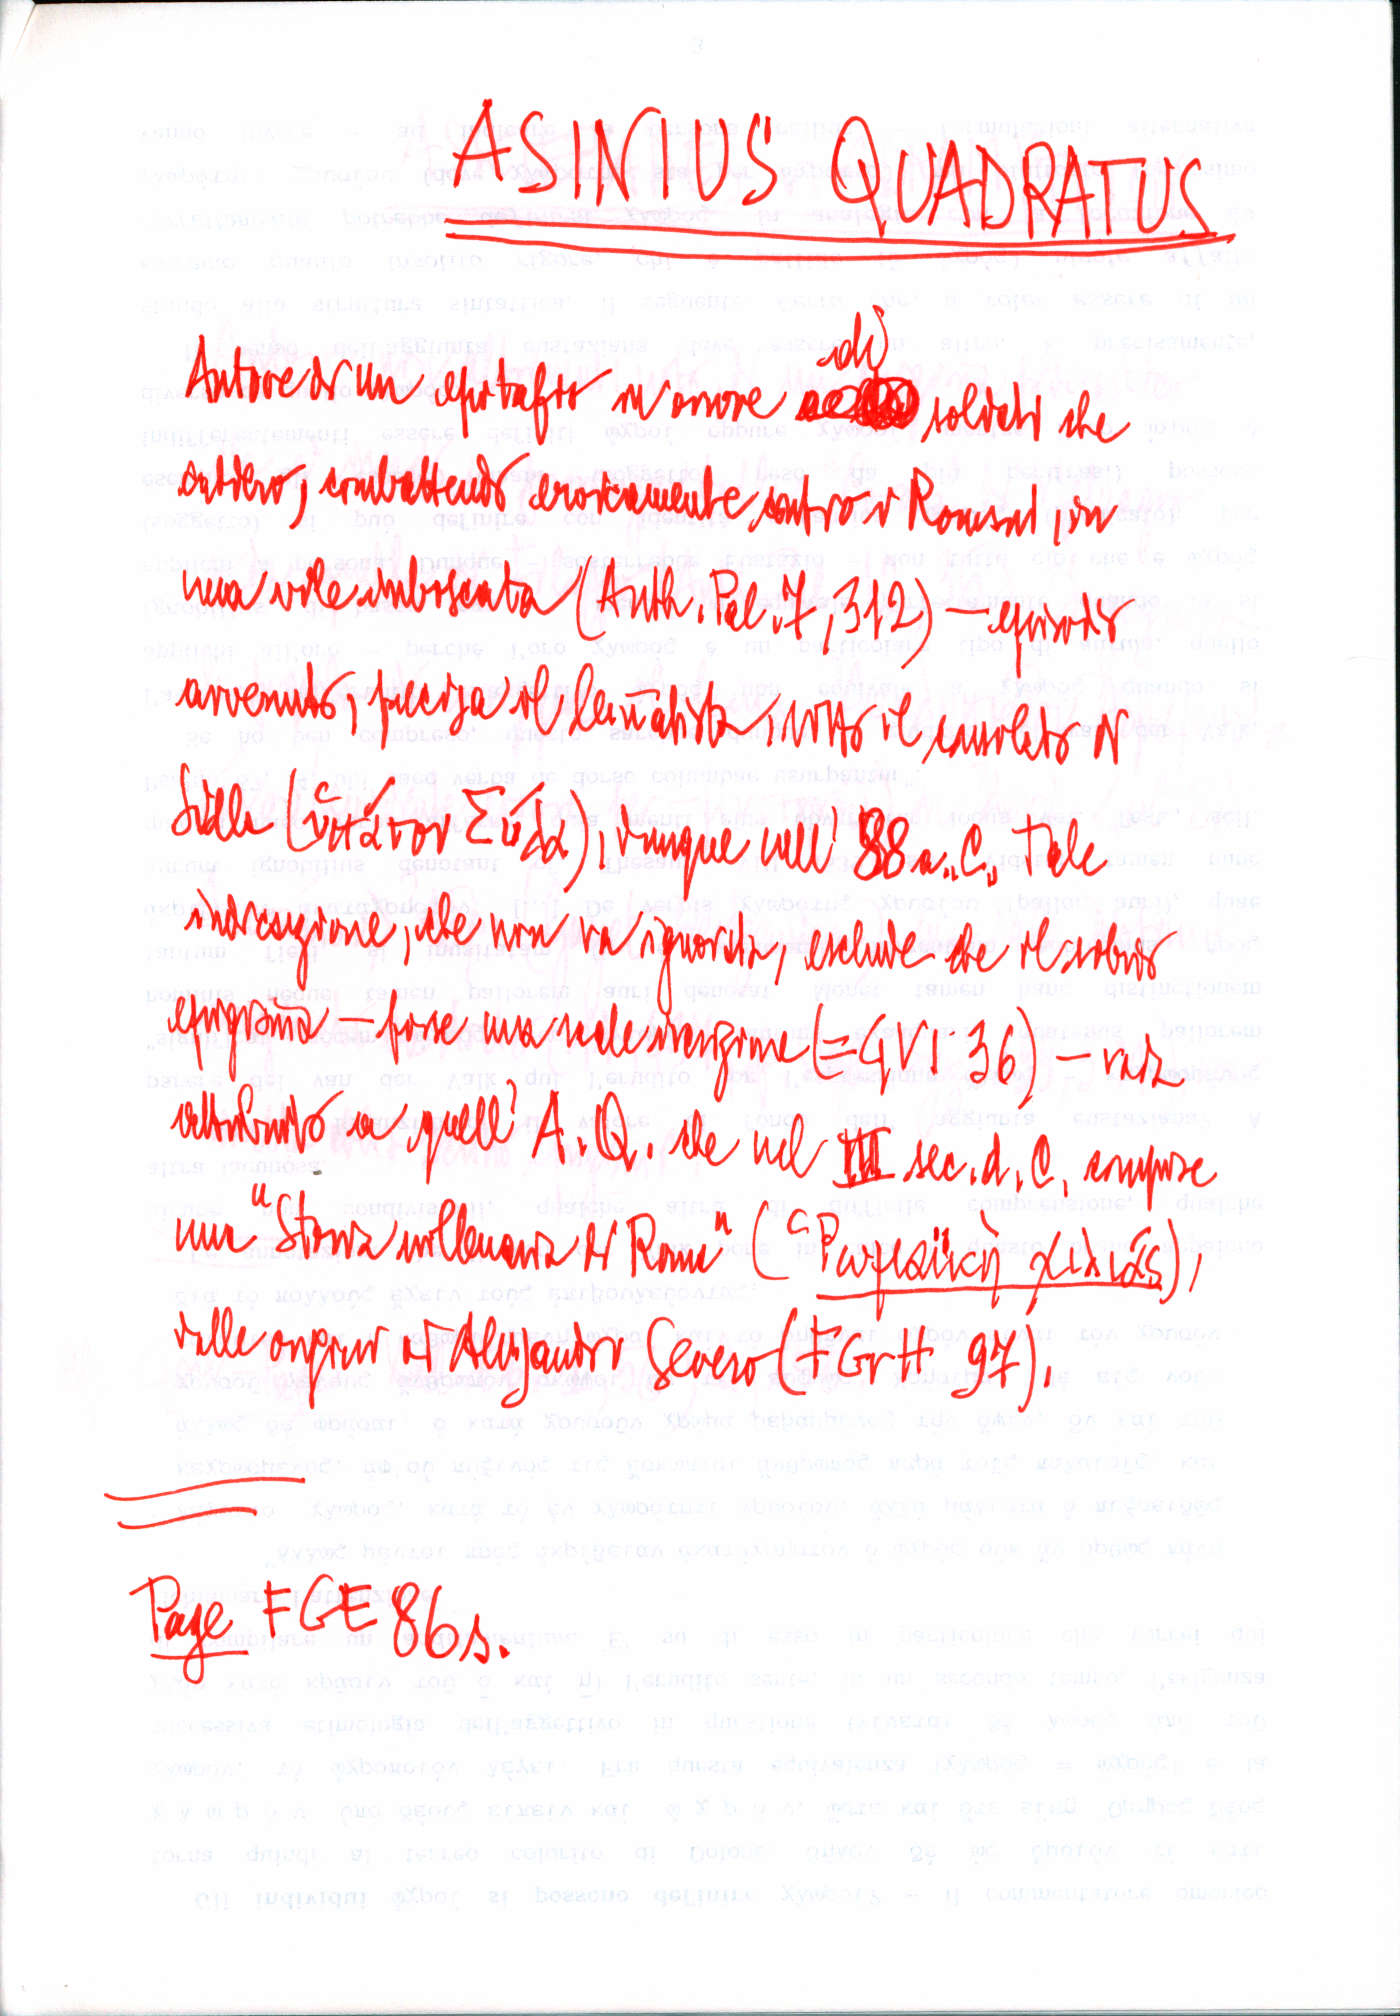 ASINIUS QUADRATUS
Autore di un epitafio in onore di soldati che
caddero, combattendo eroicamente contro i Romani, in
una vile imboscata (Anth. Pal. 7, 312) – episodio
avvenuto, precisa il lemmatista, sotto il consolato di
Silla (ὑπάτου Σύλλα), dunque nell' 88 a.C. Tale
indicazione, che non va ignorata, esclude che il sobrio
epigramma – forse una reale iscrizione (= GVI 36) – sia
attribuito a quell' A.Q. che nel III sec. d.C. compose
una "Storia millenaria di Roma" (Ῥωμαϊκὴ χιλιάς),
dalle origini ad Alessandro Severo (FGrH 97).
Page FGE 86s.